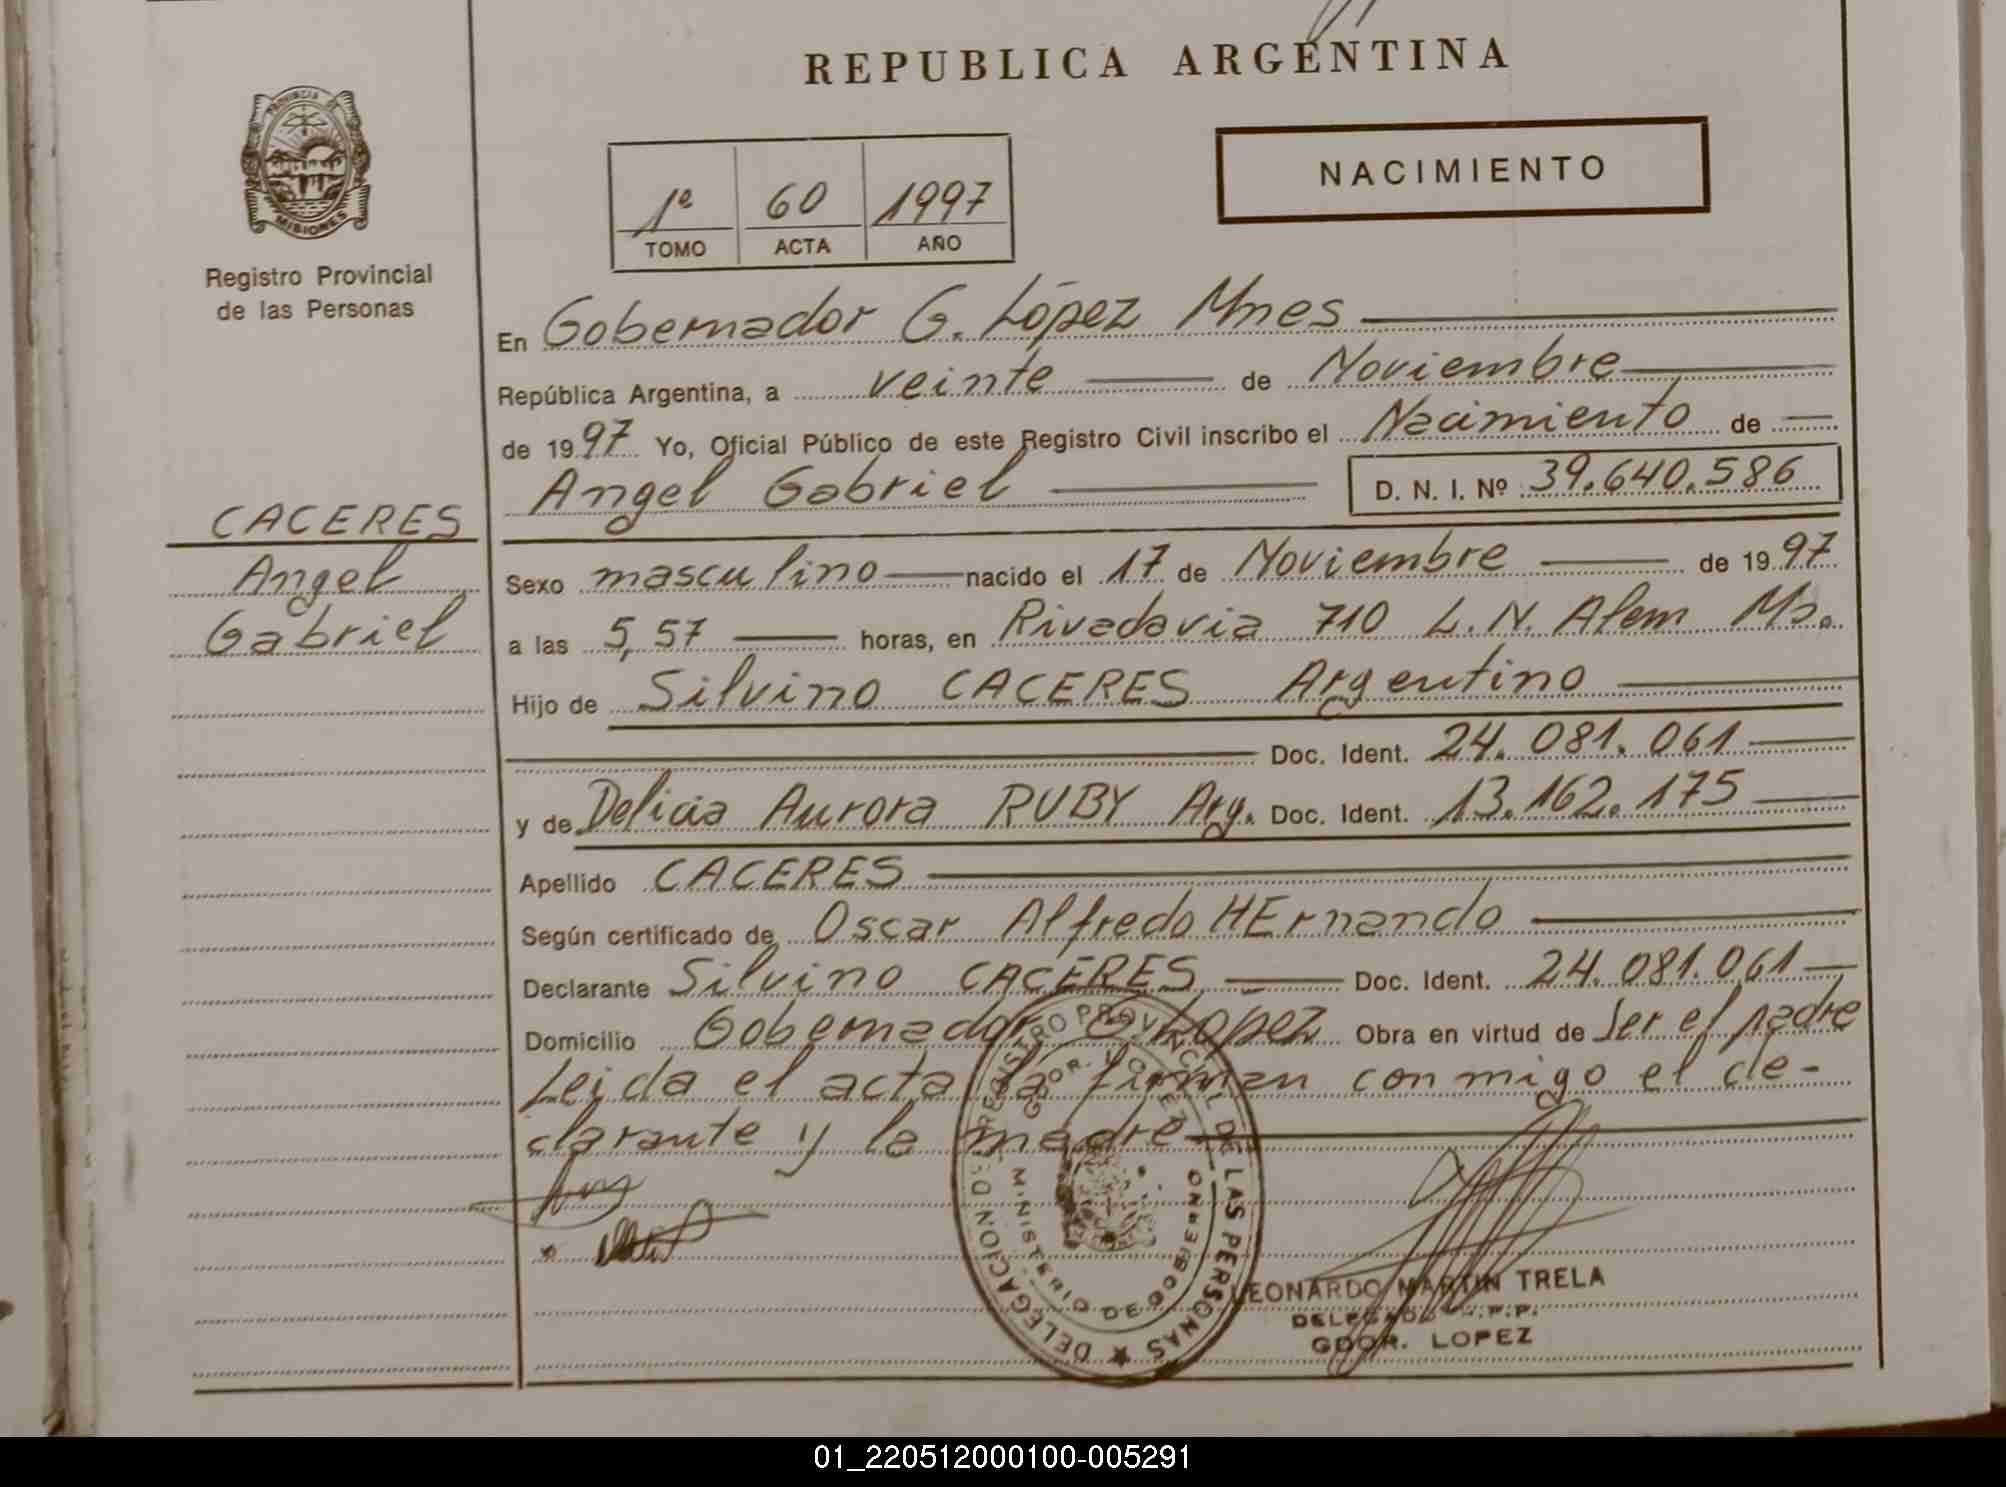 REPUBLICA ARGENTINA
PROVINCIA DE
MISIONES
Registro Provincial
de las Personas
1º 60 1997
TOMO ACTA AÑO
NACIMIENTO
En Gobernador G. López Mnes
República Argentina, a veinte de Noviembre
de 1997 Yo, Oficial Público de este Registro Civil inscribo el Nacimiento de
Angel Gabriel D. N. I. Nº 39.640.586
CACERES
Angel
Gabriel
Sexo masculino nacido el 17 de Noviembre de 1997
a las 5,57 horas, en Rivadavia 710 L. N. Alem Ms.
Hijo de Silvino CACERES Argentino
Doc. Ident. 24.081.061
y de Delicia Aurora RUBY Arg. Doc. Ident. 13.162.175
Apellido CACERES
Según certificado de Oscar Alfredo HErnando
Declarante Silvino CACERES Doc. Ident. 24.081.061
Domicilio Gobernador G. López Obra en virtud de Ser el padre
Leida el acta la firman conmigo el de-
clarante y la madre
REGISTRO PROVINCIAL DE LAS PERSONAS ★ DELEGACION
GDOR. LOPEZ
MINISTERIO DE GOBIERNO
LEONARDO MARTIN TRELA
DELEGADO R.P.P.
GDOR. LOPEZ
01_220512000100-005291